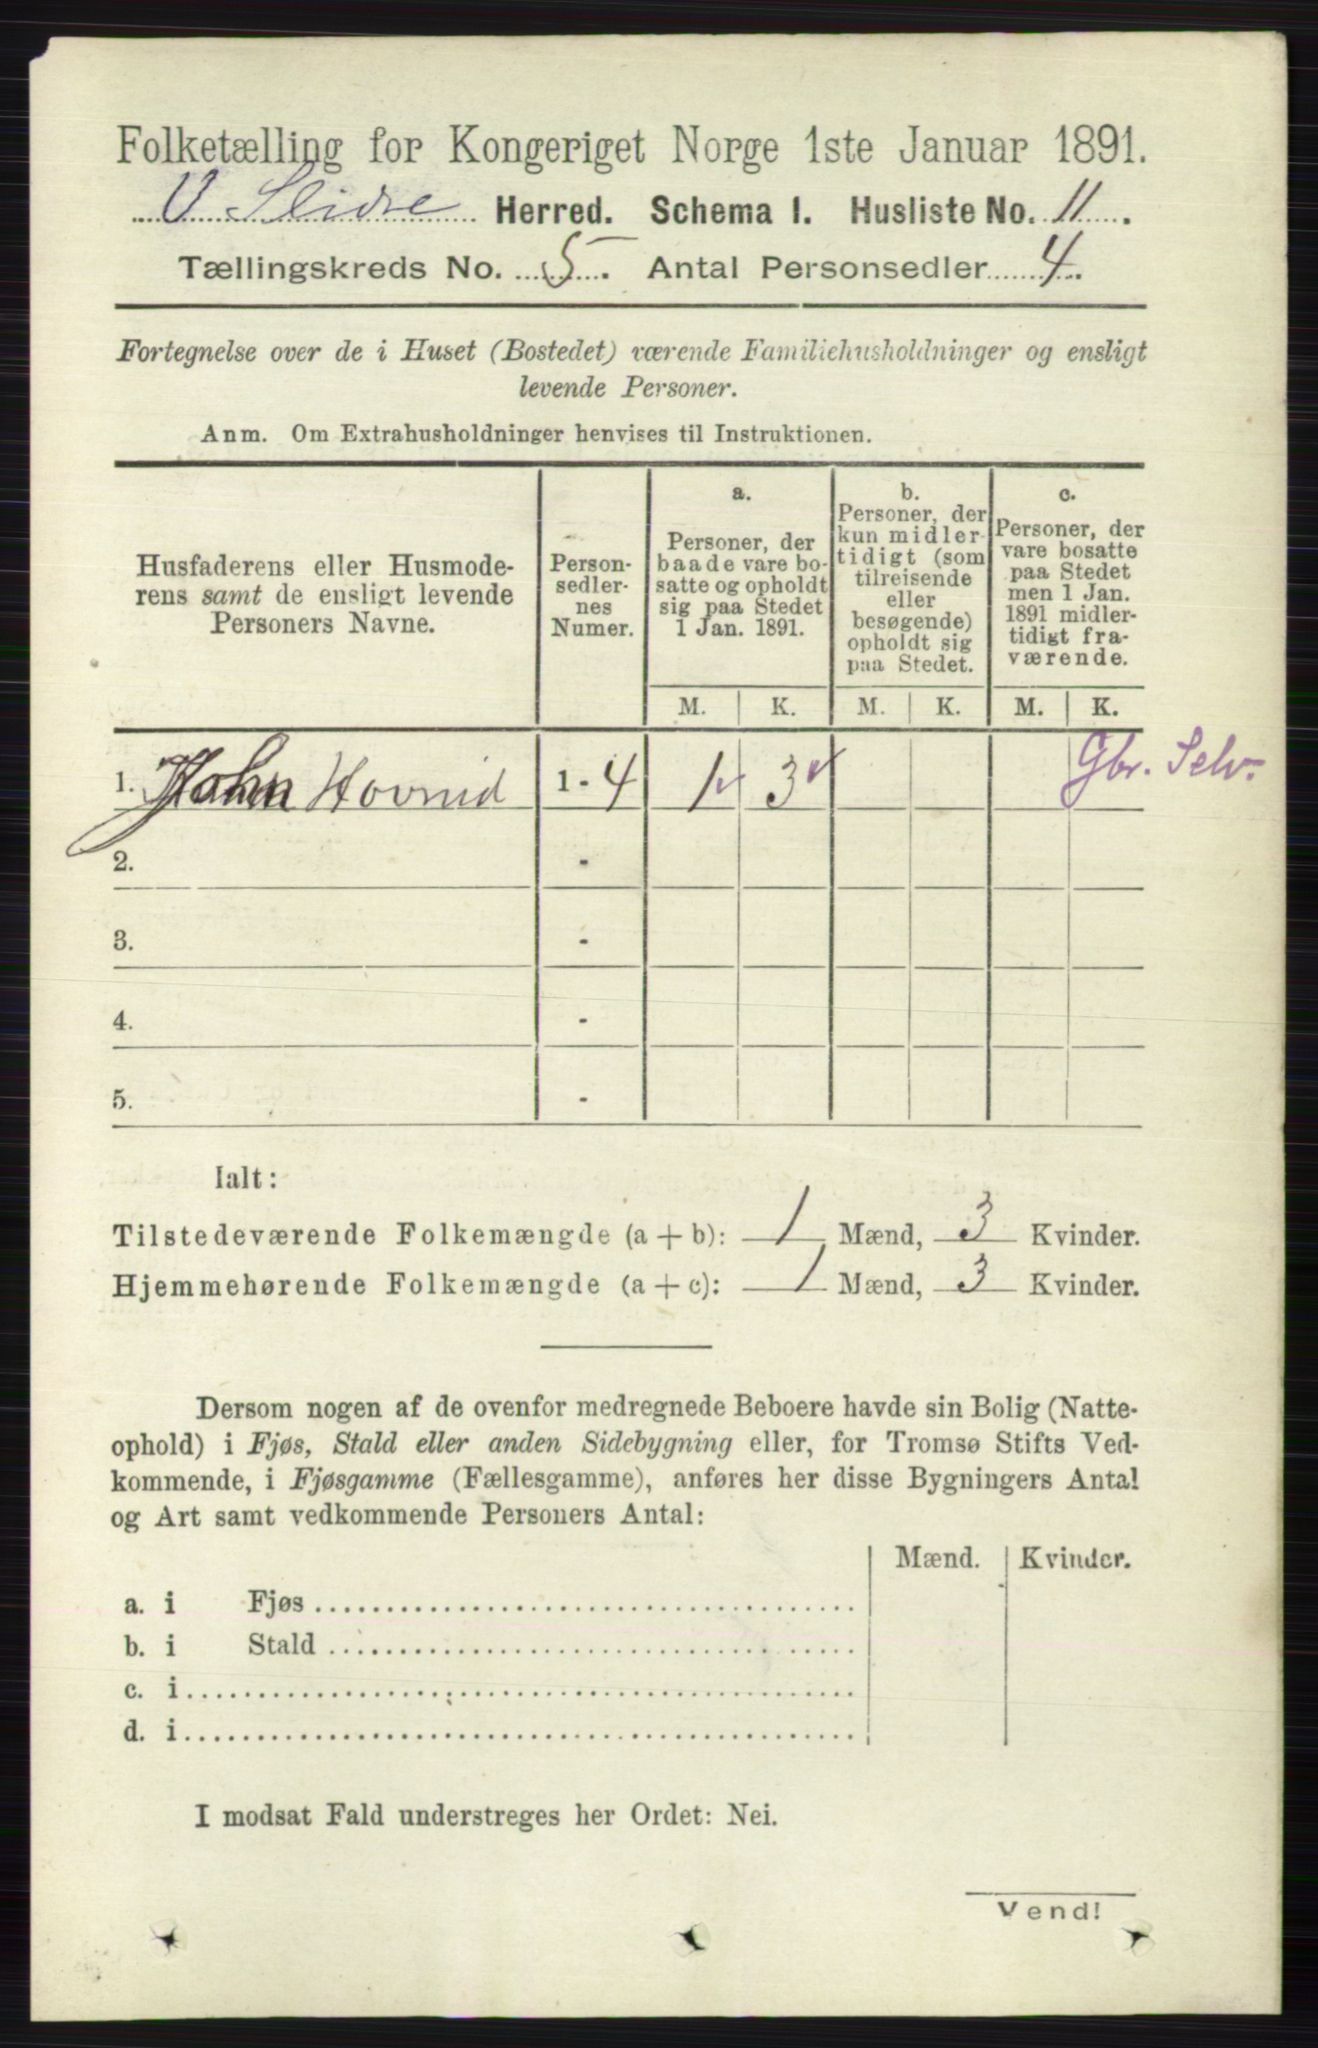 Folketælling for Kongeriget Norge 1ste Januar 1891.
V Slidre Herred. Schema 1. Husliste No. 11.
Tællingskreds No. 5. Antal Personsedler 4.
Fortegnelse over de i Huset (Bostedet) værende Familiehusholdninger og ensligt
levende Personer.
Anm. Om Extrahusholdninger henvises til Instruktionen.
Husfaderens eller Husmode-
rens samt de ensligt levende
Personers Navne.
Person-
sedler-
nes
Numer.
a.
Personer, der
baade vare bo-
satte og opholdt
sig paa Stedet
1 Jan. 1891.
b.
Personer, der
kun midler-
tidigt (som
tilreisende
eller
besøgende)
opholdt sig
paa Stedet.
c.
Personer, der
vare bosatte
paa Stedet
men 1 Jan.
1891 midler-
tidigt fra-
værende.
M. K. M. K. M. K.
1. John Hovrud 1 - 4 1 3 Gbr. Selv.
2. -
3. -
4. -
5. -
Ialt:
Tilstedeværende Folkemængde (a + b): 1 Mænd, 3 Kvinder.
Hjemmehørende Folkemængde (a + c): 1 Mænd, 3 Kvinder.
Dersom nogen af de ovenfor medregnede Beboere havde sin Bolig (Natte-
ophold) i Fjøs, Stald eller anden Sidebygning eller, for Tromsø Stifts Ved-
kommende, i Fjøsgamme (Fællesgamme), anføres her disse Bygningers Antal
og Art samt vedkommende Personers Antal:
Mænd. Kvinder.
a. i Fjøs
b. i Stald
c. i
d. i
I modsat Fald understreges her Ordet: Nei.
Vend!